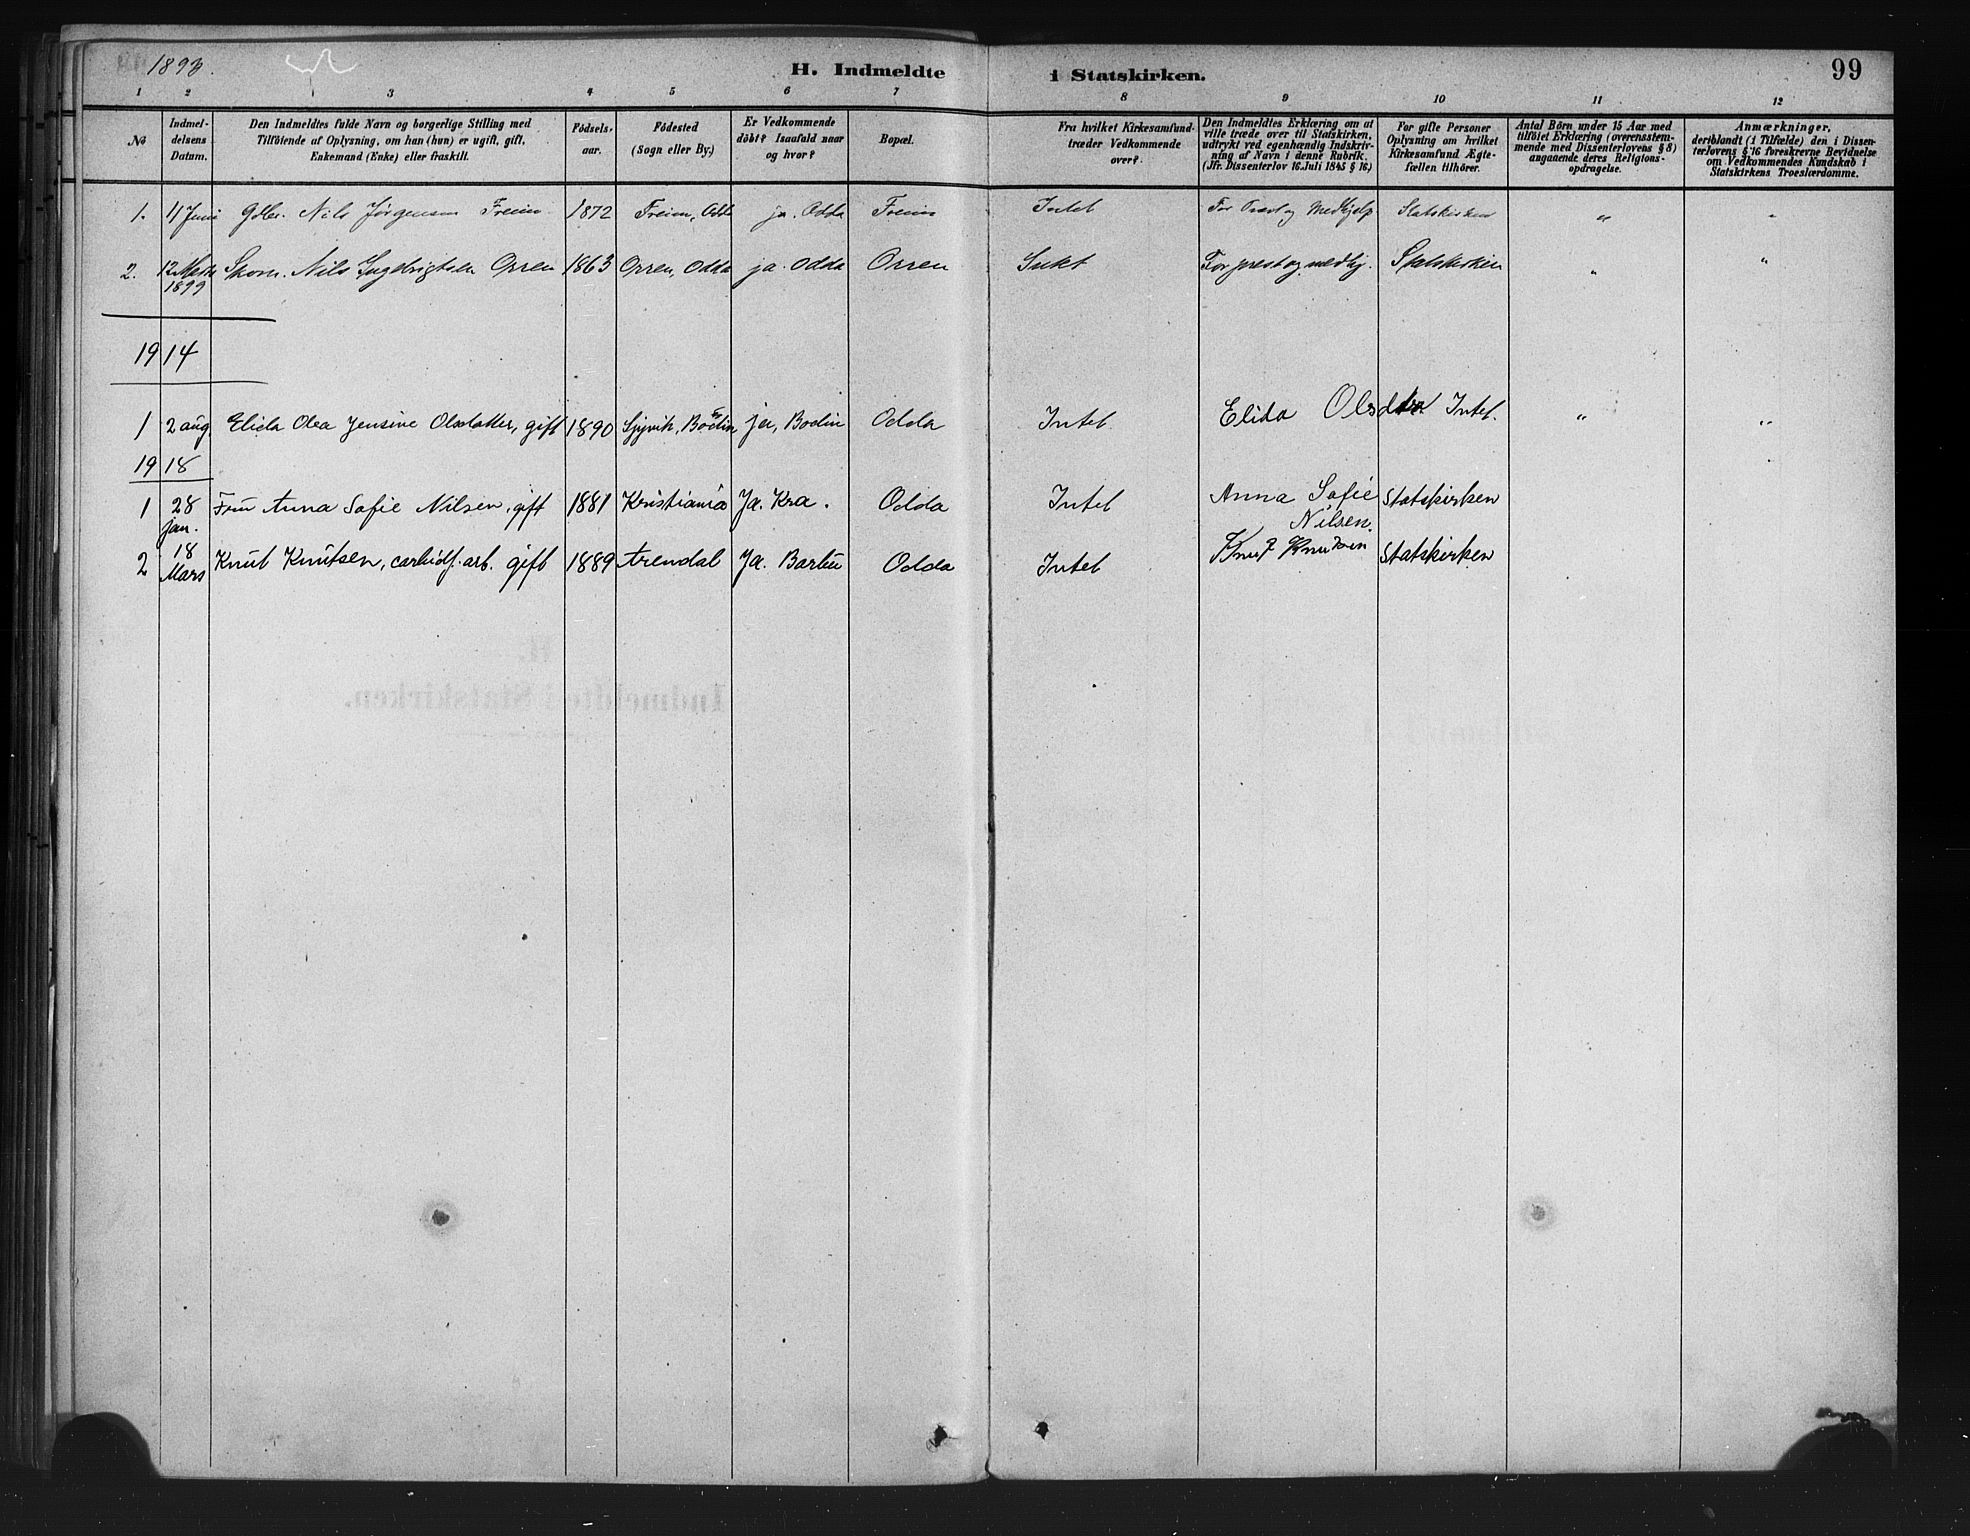 1893.
H. Indmeldte i Statskirken.
99
1 2 3 4 5 6 7 8 9 10 11 12
No
Indmeldelsens Datum.
Den Indmeldtes fulde Navn og borgerlige Stilling med
Tilföiende af Oplysning, om han (hun) er ugift, gift,
Enkemand (Enke) eller fraskilt.
Födselsaar.
Födested
(Sogn eller By.)
Er Vedkommende
döbt? Isaafald naar
og hvor?
Bopæl.
Fra hvilket Kirkesamfund
træder Vedkommende
over?
Den Indmeldtes Erklæring om at
ville træde over til Statskirken,
udtrykt ved egenhændig Indskrivning
af Navn i denne Rubrik.
(Jfr. Dissenterlov 16. Juli 1845 § 16.)
For gifte Personer
Oplysning om hvilket
Kirkesamfund Ægtefællen
tilhörer.
Antal Börn under 15 Aar med
tilföiet Erklæring (overensstemmende
med Dissenterlovens § 8)
angaaende deres Religionsopdragelse.
Anmærkninger,
deriblandt (i Tilfælde) den i Dissenterlovens
§ 16 foreskrevne Bevidnelse
om Vedkommendes Kundskab i
Statskirkens Troeslærdomme.
1. 11 Juni Gdbr. Nils Jørgensen Freim 1872 Freim, Odda ja. Odda Freim Intet For Præst og Medhjelp Statskirken " "
2. 12 Marts 1899 Skom. Nils Ingebrigtsen Orren 1863 Orren, Odda ja. Odda Orren Intet For prest og medhj. Statskirken " "
1914
1 2 aug. Elida Olea Jensine Olsdatter, gift 1890 Bodin ja, Bodin Odda Intet Elida Olsdtr. Intet. " "
1918
1 28 jan. Fru Anna Sofie Nilsen, gift 1881 Kristiania Ja. Kra. Odda Intet Anna Sofie Nilsen. Statskirken
2 18 Mars Knut Knutsen, carbidf. arb. gift 1889 Arendal Ja. Barbu Odda Intet Knut Knutsen Statskirken